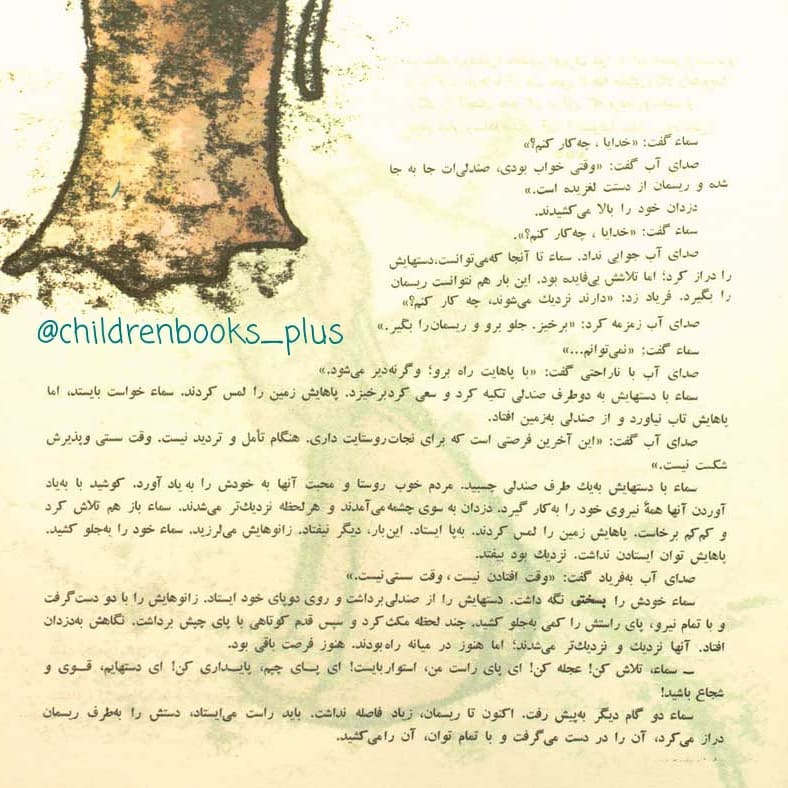 سماء گفت: «خدایا ، چه‌کار کنم؟»
صدای آب گفت: «وقتی خواب بودی، صندلی‌ات جا به جا
شده و ریسمان از دستت لغزیده است.»
دزدان خود را بالا می‌کشیدند.
سماء گفت: «خدایا ، چه‌کار کنم؟».
صدای آب جوابی نداد. سماء تا آنجا که‌می‌توانست،دستهایش
را دراز کرد؛ اما تلاشش بی‌فایده بود. این بار هم نتوانست ریسمان
را بگیرد. فریاد زد: «دارند نزدیك می‌شوند، چه کار کنم؟»
@childrenbooks_plus
صدای آب زمزمه کرد: «برخیز. جلو برو و ریسمان‌را بگیر.»
سماء گفت: «نمی‌توانم...»
صدای آب با ناراحتی گفت: «با پاهایت راه برو؛ وگرنه‌دیر می‌شود.»
سماء با دستهایش به دوطرف صندلی تکیه کرد و سعی کردبرخیزد. پاهایش زمین را لمس کردند. سماء خواست بایستد، اما
پاهایش تاب نیاورد و از صندلی به‌زمین افتاد.
صدای آب گفت: «این آخرین فرصتی است که برای نجات‌روستایت داری. هنگام تأمل و تردید نیست. وقت سستی وپذیرش
شکست نیست.»
سماء با دستهایش به‌یك طرف صندلی چسبید. مردم خوب روستا و محبت آنها به خودش را به‌یاد آورد. کوشید با به‌یاد
آوردن آنها همهٔ نیروی خود را به‌کار گیرد. دزدان به سوی چشمه‌می‌آمدند و هرلحظه نزدیك‌تر می‌شدند. سماء باز هم تلاش کرد
و کم‌کم برخاست. پاهایش زمین را لمس کردند. به‌پا ایستاد. این‌بار، دیگر نیفتاد. زانوهایش می‌لرزید. سماء خود را به‌جلو کشید.
پاهایش توان ایستادن نداشت. نزدیك بود بیفتد.
صدای آب به‌فریاد گفت: «وقت افتادن نیست، وقت سستی‌نیست.»
سماء خودش را بسختی نگه داشت. دستهایش را از صندلی‌برداشت و روی دوپای خود ایستاد. زانوهایش را با دو دست‌گرفت
و با تمام نیرو، پای راستش را کمی به‌جلو کشید. چند لحظه مکث‌کرد و سپس قدم کوتاهی با پای چپش برداشت. نگاهش به‌دزدان
افتاد. آنها نزدیك و نزدیك‌تر می‌شدند؛ اما هنوز در میانه راه‌بودند. هنوز فرصت باقی بود.
ــ سماء، تلاش کن! عجله کن! ای پای راست من، استواربایست! ای پـای چپم، پایـداری کن! ای دستهایم، قـوی و
شجاع باشید!
سماء دو گام دیگر به‌پیش رفت. اکنون تا ریسمان، زیاد فاصله نداشت. باید راست می‌ایستاد، دستش را به‌طرف ریسمان
دراز می‌کرد، آن را در دست می‌گرفت و با تمام توان، آن رامی‌کشید.